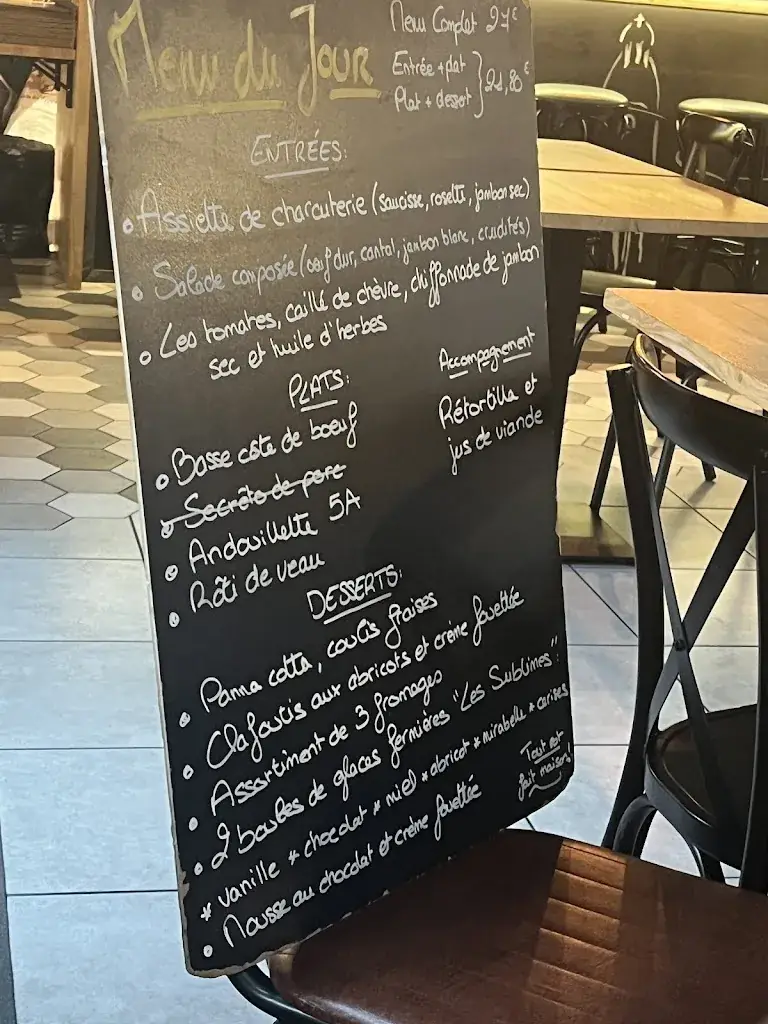 Menu du Jour
Menu Complet 27€
Entrée + plat
Plat + dessert } 21,80€
ENTRÉES:
• Assiette de charcuterie (saucisse, rosette, jambon sec)
• Salade composée (oeuf dur, cantal, jambon blanc, crudités)
• Les tomates, caillé de chèvre, chiffonnade de jambon
sec et huile d'herbes
PLATS:
• Basse côte de boeuf
• Secréto de porc
• Andouillette 5A
• Rôti de veau
Accompagnement
Rétortilla et
jus de viande
DESSERTS:
• Panna cotta, coulis fraises
• Clafoutis aux abricots et crème fouettée
• Assortiment de 3 fromages
• 2 boules de glaces fermières "Les Sublimes":
* vanille * chocolat * miel * abricot * mirabelle * cerises
• Mousse au chocolat et crème fouettée
Tout est
fait maison!